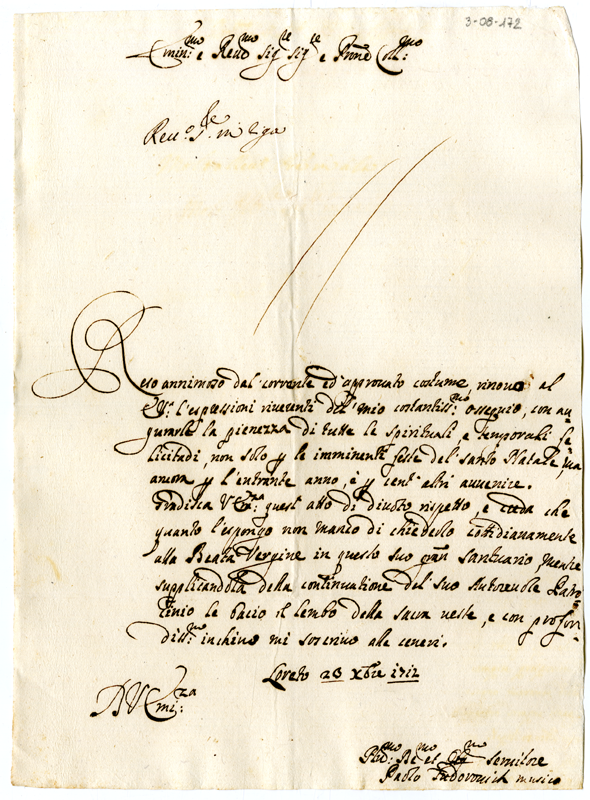 3-08-172
Emin:mo e Reumo Sigre Sigre e Prone Coll:mo
Reso annimoso dal corrente ed approuato costume rinouo al
l'espressioni riuerenti del mio costantiss:mo osseguio, con au
gurarle la pienezza di tutte le spirituali, e temporali fe
licitadi, non solo p le imminenti feste del santo Natale, ma
ancor p l'entrante anno, è p cent'altri auuenire.
Gradisca V Emza: quest atto di diuoto rispetto, e creda che
quanto l'espongo non manco di chiederlo cottidianamente
alla Beata Vergine in questo suo gran santuario, mentre
supplicandola della continuatione del suo Autoreuole Patro
cinio le bacio il lembo della sacra veste, e con profon
diss:mo inchino mi soscriuo alle ceneri.
Loreto 23 Xbre 1712
D V Emi:za
seruitore
Paolo musico